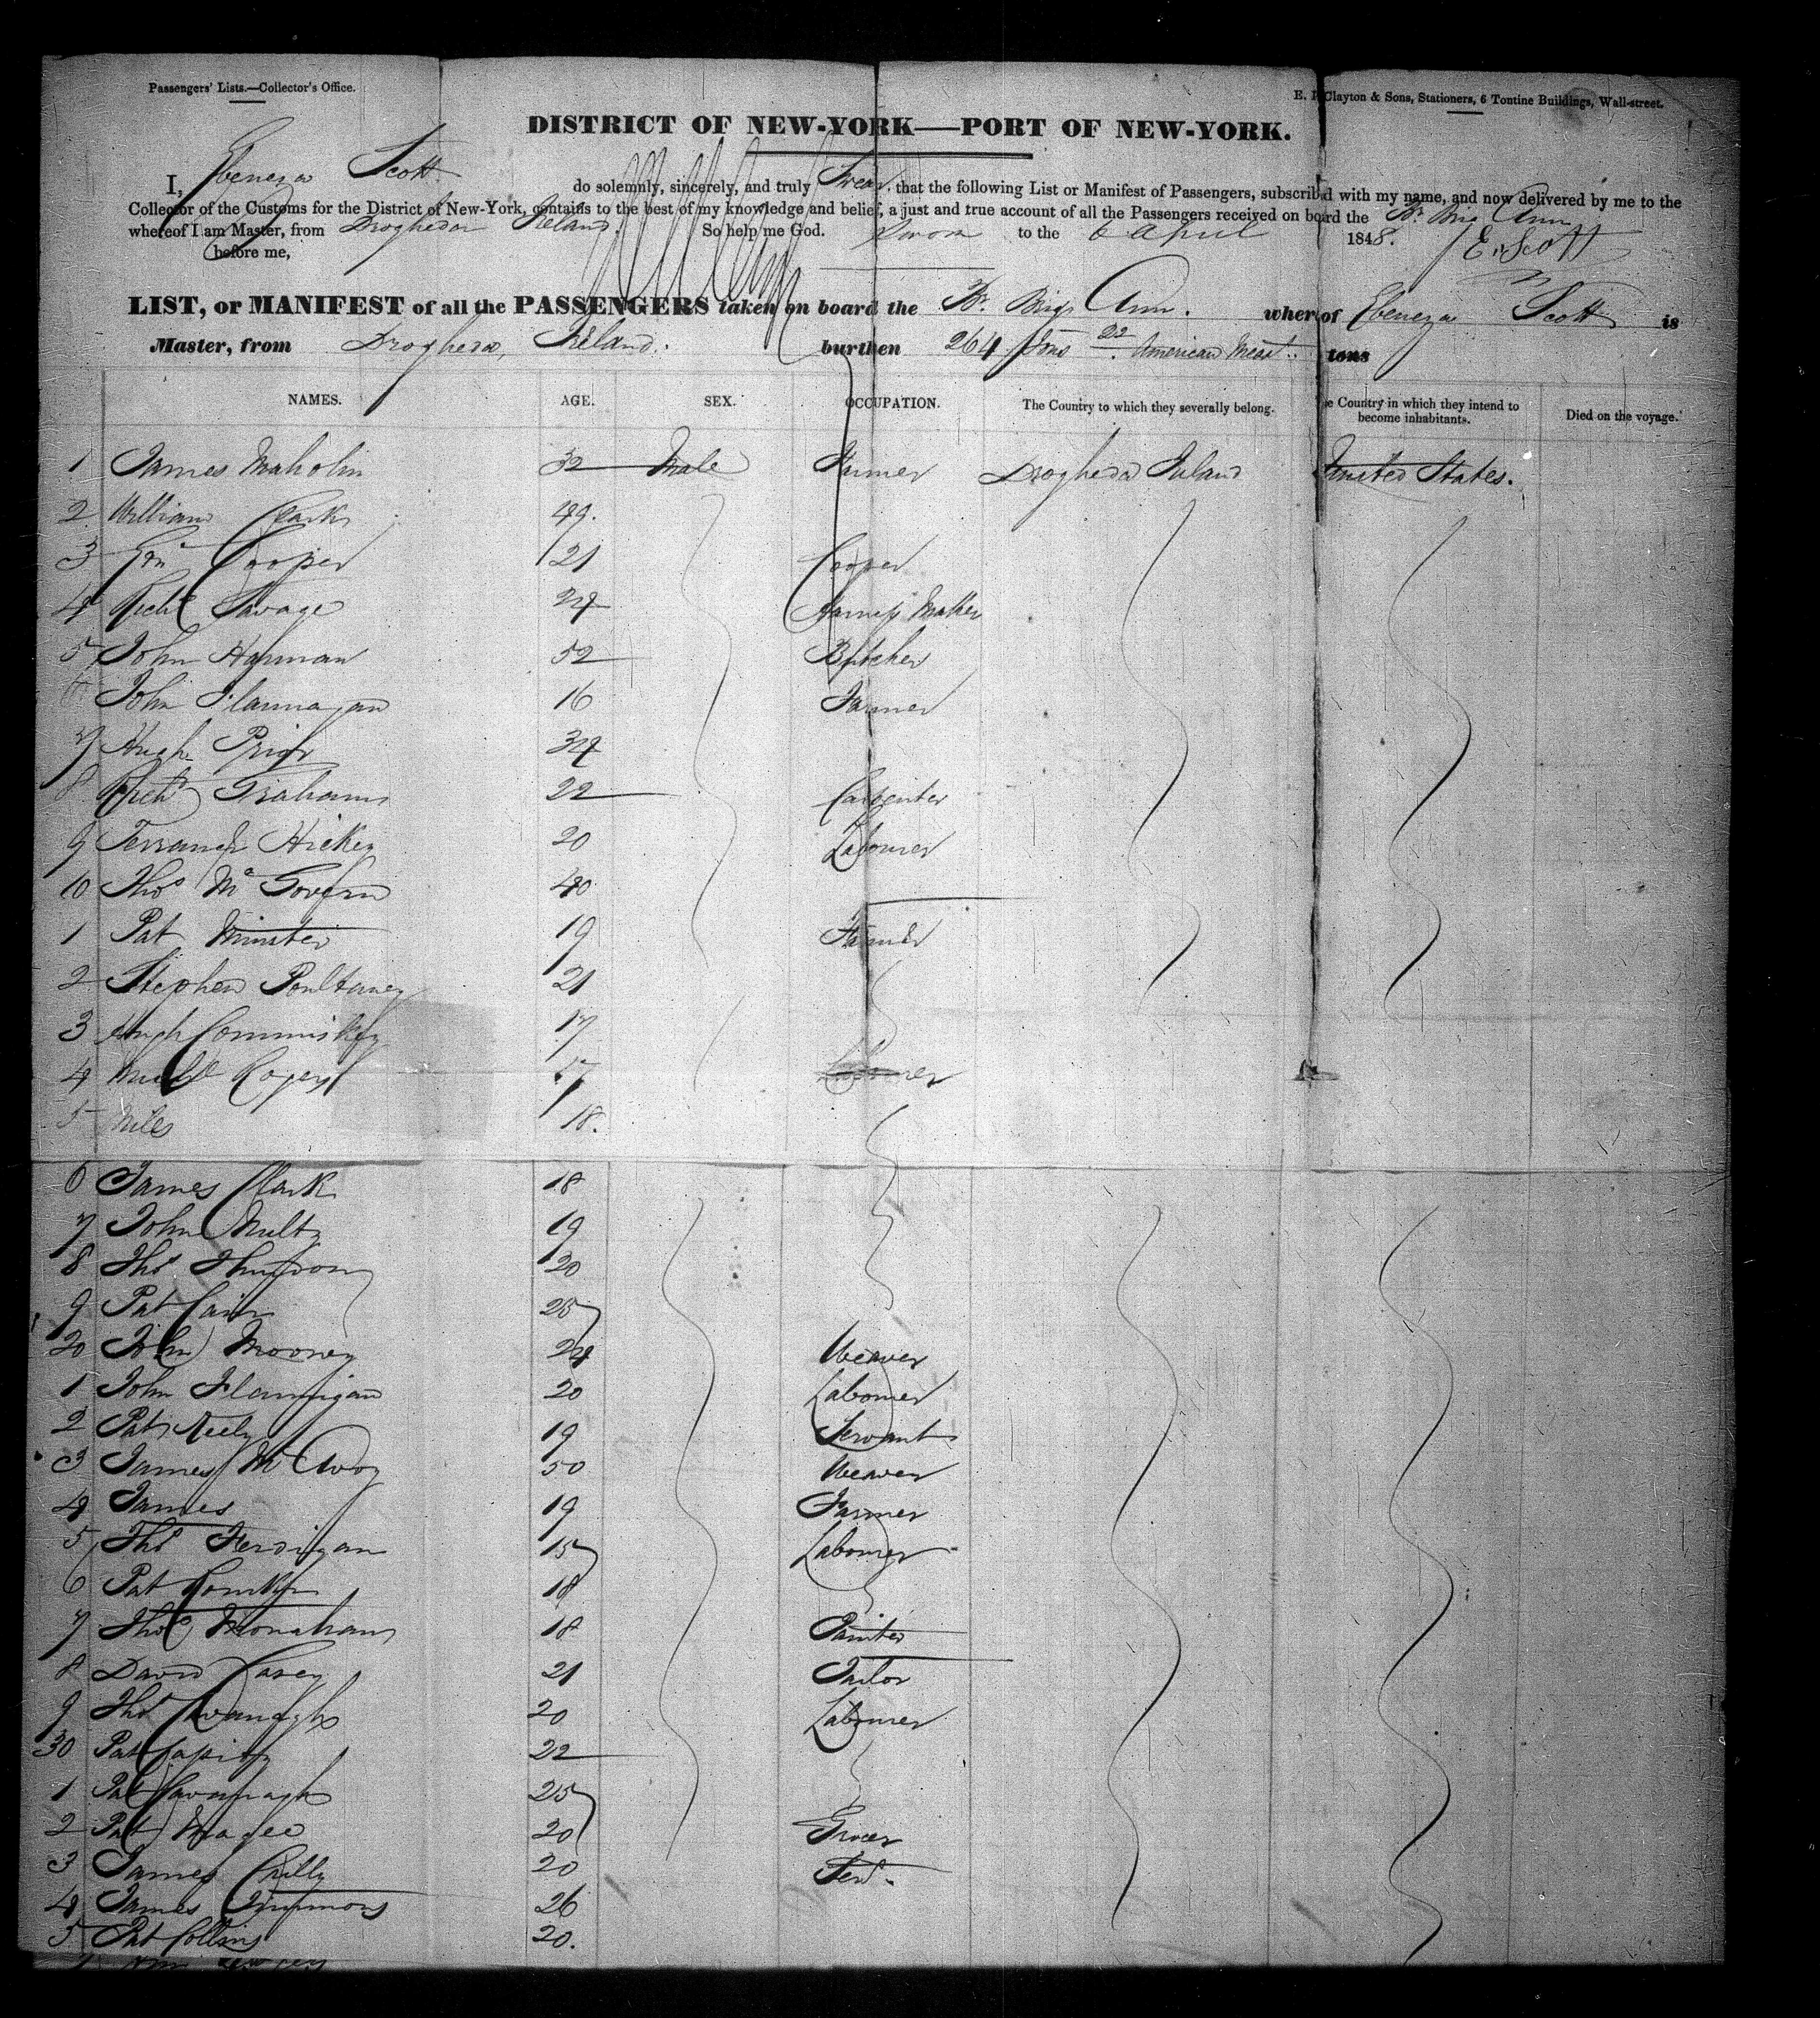 Passengers' Lists.—Collector's Office.
E. Clayton & Sons, Stationers, 6 Tontine Buildings, Wall-street.
DISTRICT OF NEW-YORK—PORT OF NEW-YORK.
I, Ebenezer Scott do solemnly, sincerely, and truly Swear that the following List or Manifest of Passengers, subscribed with my name, and now delivered by me to the
Collector of the Customs for the District of New-York, contains to the best of my knowledge and belief, a just and true account of all the Passengers received on board the Br. Brig Ann
whereof I am Master, from Drogheda Ireland. So help me God.
Sworn to the 6 April 1848. E. Scott
before me,
LIST, or MANIFEST of all the PASSENGERS taken on board the Br. Brig Ann. whereof Ebenezer Scott is
Master, from Drogheda, Ireland. burthen 264 Tons 22 American Meast. tons
NAMES. AGE. SEX. OCCUPATION. The Country to which they severally belong. The Country in which they intend to become inhabitants. Died on the voyage.
1 James Maholin 32 Male Farmer Drogheda Ireland United States.
2 William Clark 49.
3 Cooper 21 Cooper
4 Richd Savage 24 Harness Maker
5 John Harman 52 Butcher
6 John Flannagan 16 Farmer
7 Hugh Prior 34
8 Richd Grahams 22 Carpenter
9 Hickey 20 Labourer
10 Thos McGovern 40
1 Pat Minster 19 Farmer
2 Stephen Poultaney 21
3 Hugh Commiskey 17
4 Rogers 17 Labourer
5 Miles 18.
6 James Clark 18
7 John Multy 19
8 Thos 20
9 Pat Cain 25
20 John Mooney 24 Weaver
1 John Flannigan 20 Labourer
2 Pat Neely 19 Servant
3 James McAvoy 50 Weaver
4 James 19 Farmer
5 Thos Ferrigan 15 Labourer
6 Pat 18
7 Thos Monahan 18 Painter
8 David Casey 21 Tailor
9 Thos Cavanaghs 20 Labourer
30 Pat Cassidy 22
1 Pat Cavanagh 25
2 Pat Magee 20 Grocer
3 James Crilly 20 Servt.
4 James Crummons 26
5 Pat Collins 20.